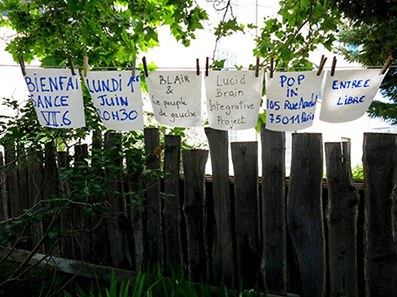 BIENFAI
SANCE
VII.6
LUNDI 1er
JUIN
20H30
BLAIR
&
le peuple
de gauche
Lucid
Brain
Integrative
Project
POP
IN
105 Rue Amelot
75011 PARIS
ENTREE
LIBRE